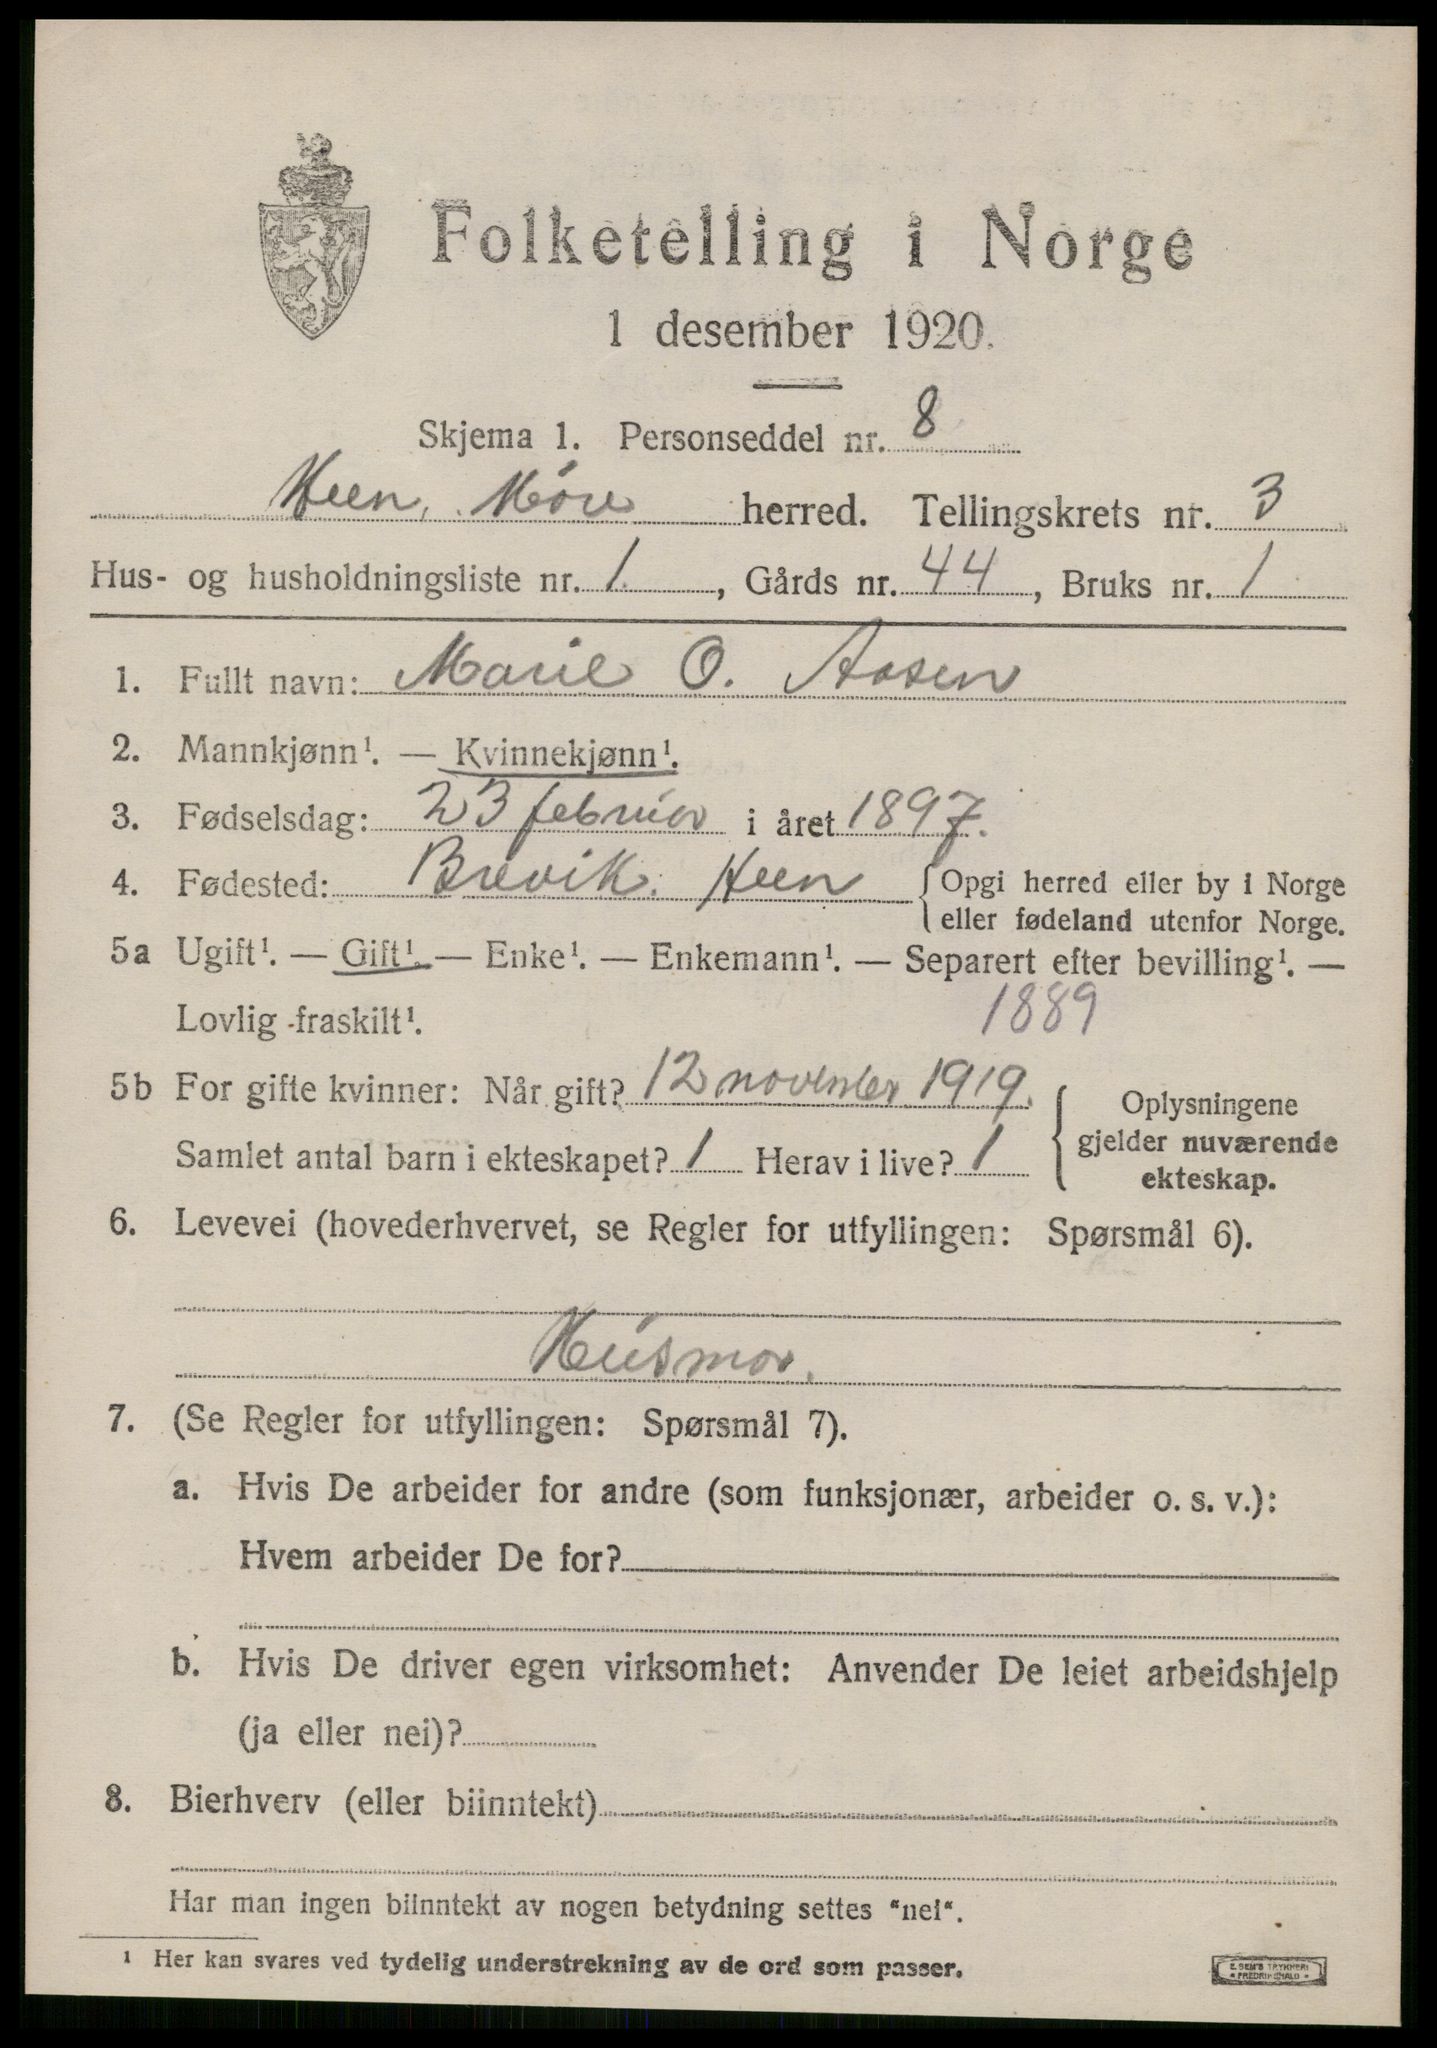 Folketelling i Norge
1 desember 1920.
Skjema 1. Personseddel nr. 8
Heen, Møre herred. Tellingskrets nr. 3
Hus- og husholdningsliste nr. 1, Gårds nr. 44, Bruks nr. 1
1. Fullt navn: Marie O. Aasen
2. Mannkjønn¹. — Kvinnekjønn¹.
3. Fødselsdag: 23 februar i året 1897.
4. Fødested: Brevik. Heen { Opgi herred eller by i Norge
eller fødeland utenfor Norge.
5a Ugift¹. — Gift¹. — Enke¹. — Enkemann¹. — Separert efter bevilling¹. —
Lovlig fraskilt¹. 1889
5b For gifte kvinner: Når gift? 12 november 1919. { Oplysningene
gjelder nuværende
ekteskap.
Samlet antal barn i ekteskapet? 1 Herav i live? 1
6. Levevei (hovederhvervet, se Regler for utfyllingen: Spørsmål 6).
Husmor.
7. (Se Regler for utfyllingen: Spørsmål 7).
a. Hvis De arbeider for andre (som funksjonær, arbeider o. s. v.):
Hvem arbeider De for?
b. Hvis De driver egen virksomhet: Anvender De leiet arbeidshjelp
(ja eller nei)?
8. Bierhverv (eller biinntekt)
Har man ingen biinntekt av nogen betydning settes "nei".
¹ Her kan svares ved tydelig understrekning av de ord som passer.
E. SEM'S TRYKKERI
FREDRIKSHALD